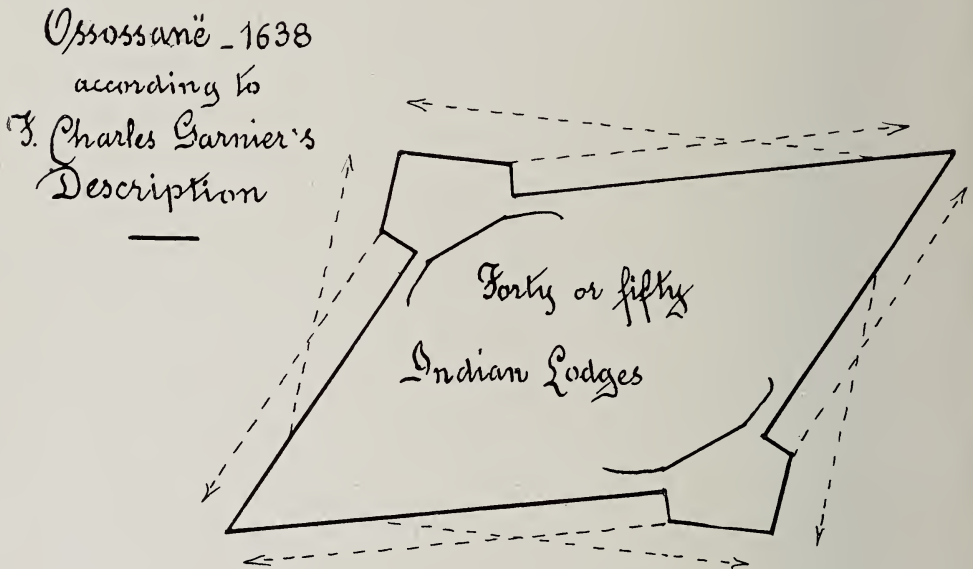 Ossossanë - 1638
according to
F. Charles Garnier's
Description
Forty or fifty
Indian Lodges